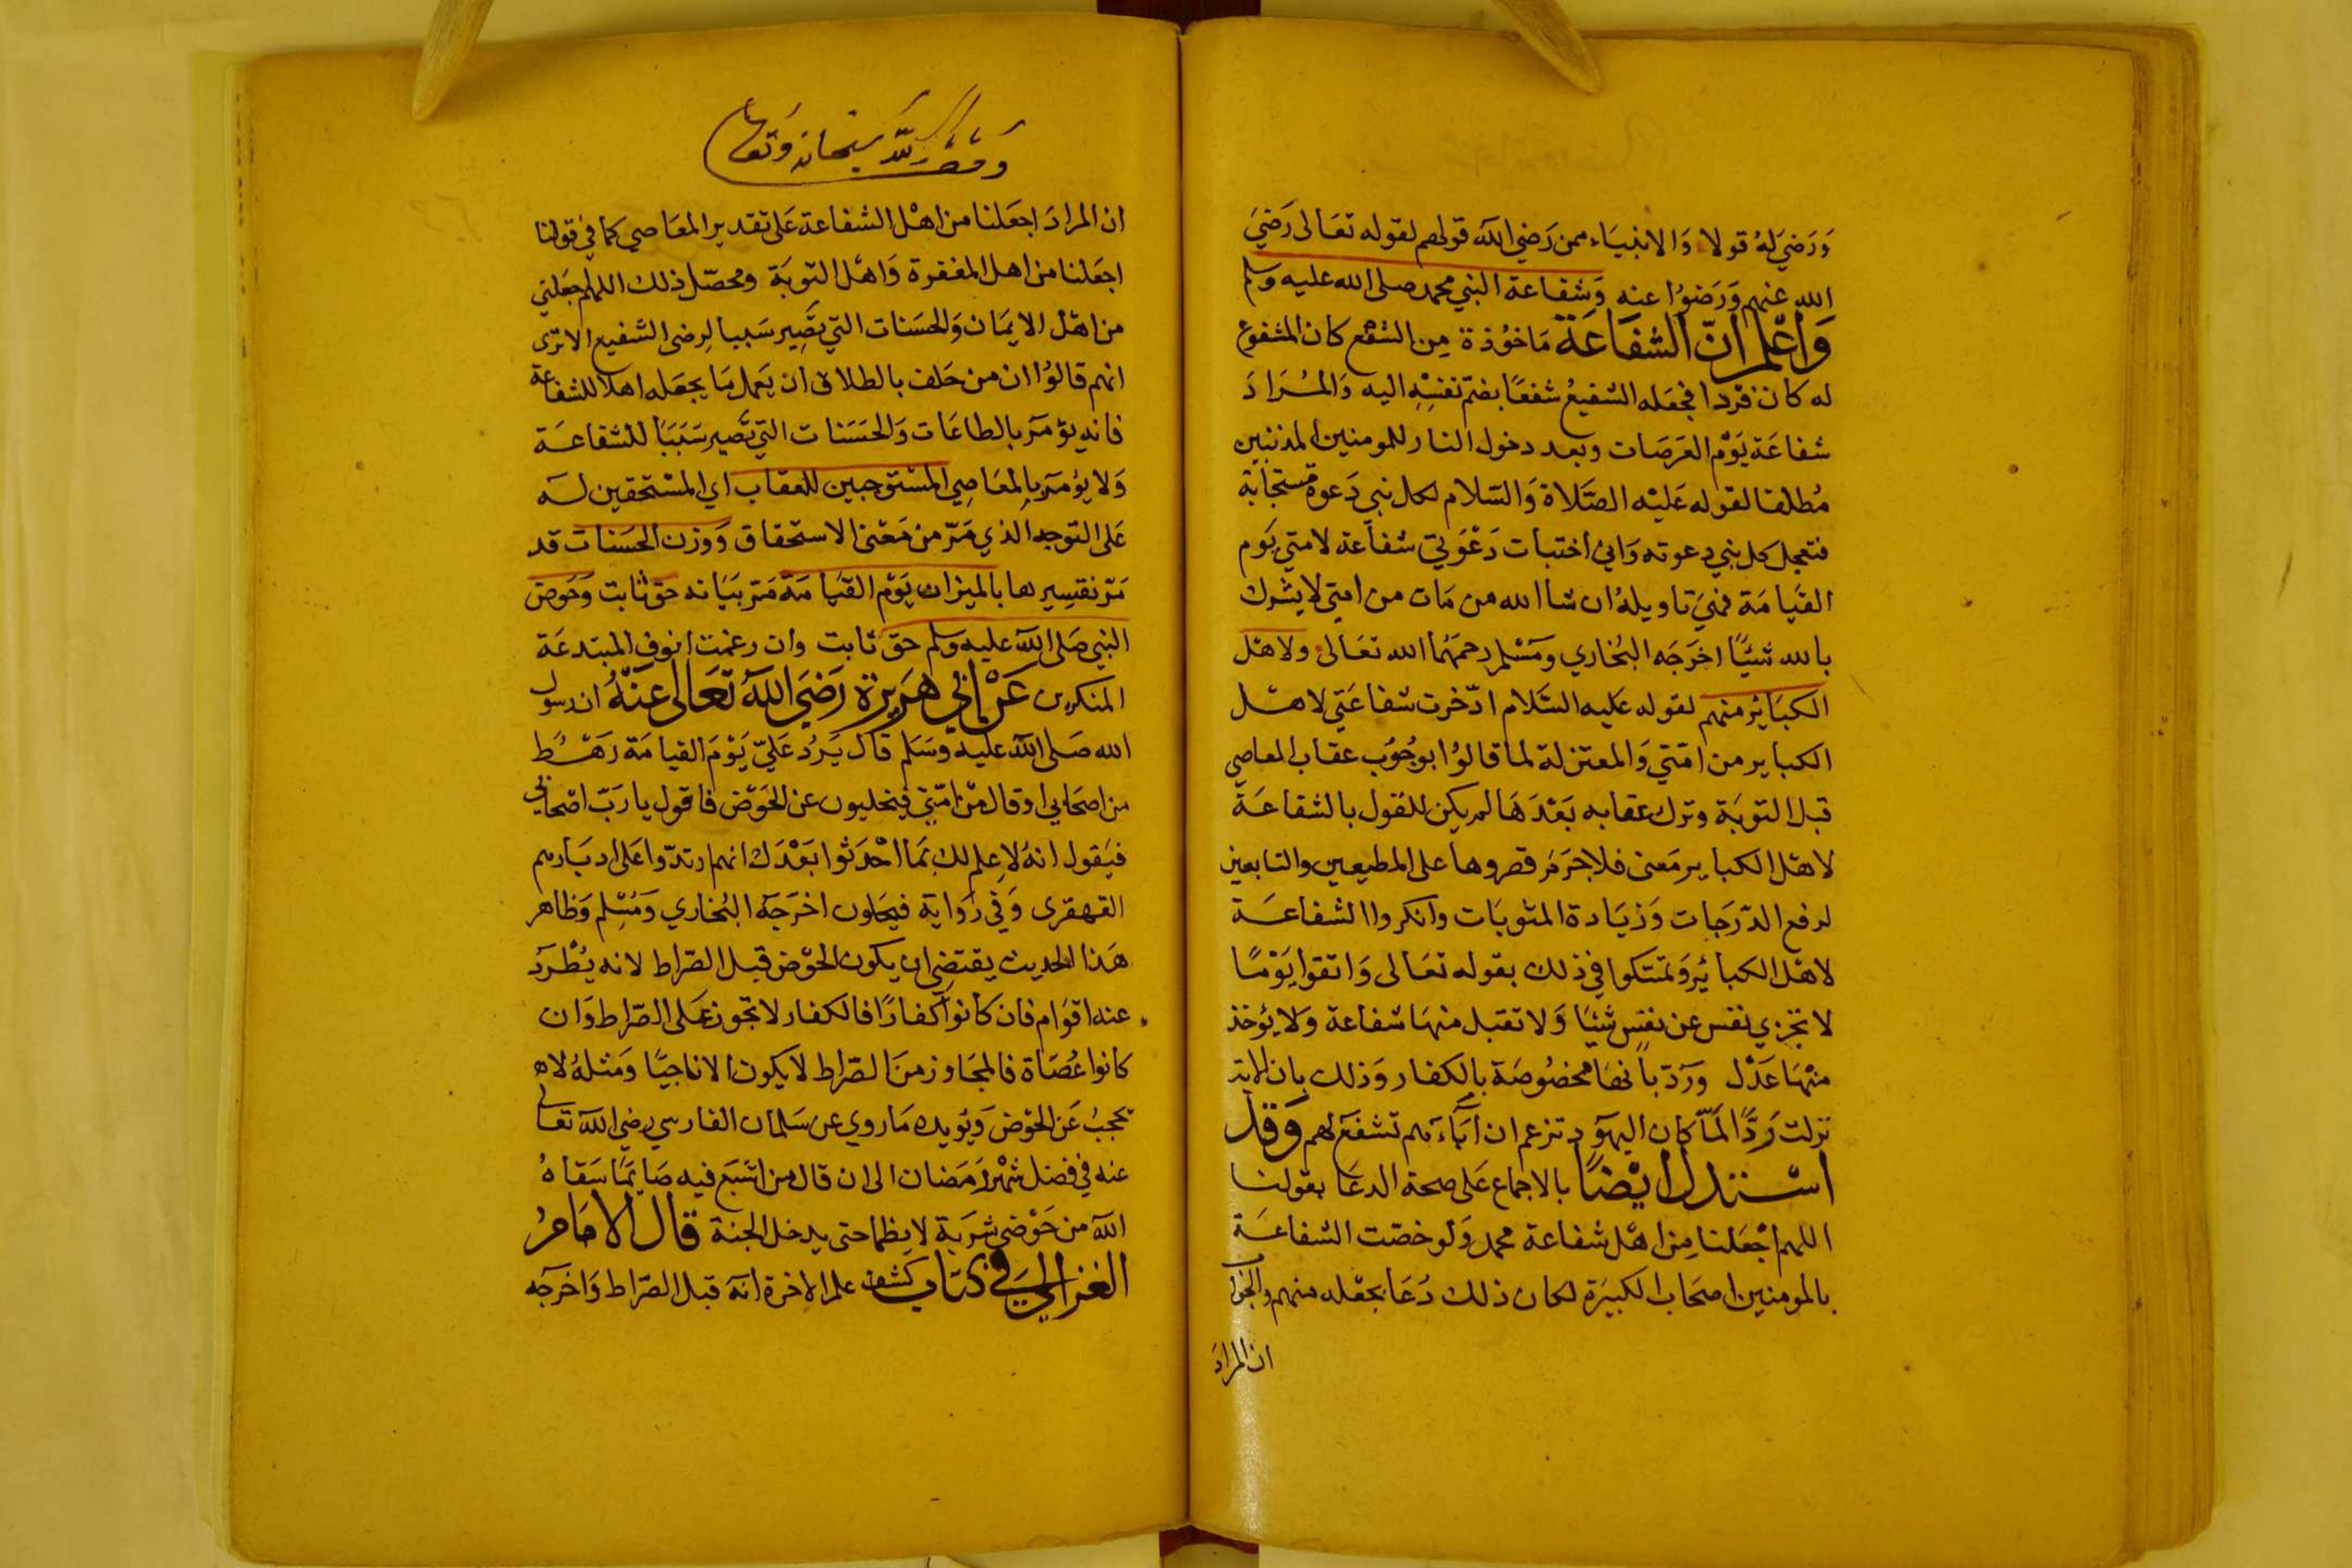 وَرَضِيَ لَهُ قولا وَالانبيَاء ممن رَضي الله قولهم لقوله تعَالى رَضيَ
الله عنهم وَرَضوُا عنه وَشفاعة النبي محمد صلى الله عليه وسلم
وَاعْلم انّ الشفَاعَة مَاخوُذة مِن الشفع كان المشفوع
له كان فرْدا فجعَله الشفيعُ شفعًا بضمّ نفسِهِ اليه وَالمُرَادَ
شفاعَة يَوْم العَرَصَات وبعد دخول النار للمومنين المذنبين
مُطلقا لقوله عَليْه الصَّلاة وَالسّلام لكل نبي دَعوة مستجابة
فتعجل كل نبي دعوته وَاني اختبات دَعْوَتي شفاعَة لامتي يَوم
القيامَة فهيَ تاويلهُ ان شا الله من مَات من امتي لا يشرك
بالله شيْئًا اخرَجَه البُخاري ومَسْلم رحمَهُما الله تعَالى ولاهْل
الكبَائر منهم لقوله عليه السَّلام ادّخرت شفاعَتي لاهْل
الكباير من امّتي وَالمعتزلة لما قالوُا بوجُوُب عقاب المعاصي
قبل التوبَة وترك عقابه بَعْدَهَا لم يكن للقول بالشفاعَة
لاهْل الكباير مَعنى فلا جرَمَر قصروها على المطيعين والتابعين
لرفع الدّرَجات وَزيَادة المثوبَات وانكروا الشفاعَة
لاهْل الكبائر وَتمسّكوا في ذلك بقوله تعَالى وَاتقوا يَوْمًا
لا تجزي نفس عن نفسٍ شيْئا وَلا تقبل منهَا شفاعة وَلا يؤخذ
منْهَا عَدْل وَرَدّ بانها مخصُوصَة بالكفار وَذلك بان الاية
نزلت رَدًّا لمَّا كان اليهوَد تزعم ان آبَاءَهم تشفعَ لهم وَقد
اسْتدل ايْضًا بالاجماع عَلى صحة الدعَا بقولنا
اللهم اجْعَلنا مِن اهْل شفاعة محمد وَلو خصّت الشفاعَة
بالمومنين اصحَاب الكبيرَة لكان ذلك دُعَا بجعْله منهم والجوَاب
ان المرادَ
سبحانه وَتعالى
ان المرادَ اجعَلنا من اهْل الشفاعة عَلى تقدير المعَاصي كما في قولنا
اجعَلنا من اهل المغفرة وَاهْل التوبَة ومحصّل ذلك اللهم اجعَلني
من اهْل الايمَان وَالحسَنات التي تصِير سَببا لِرضى الشفيع الا ترَى
انهم قالوُا ان من حَلف بالطلاق ان يَعمل مَا يجعَله اهلا للشفاعة
فانه يؤمَر بالطاعَات وَالحَسَنات التي تَصير سَبَبًا للشفاعَة
وَلا يؤمَر بالمعَاصِي المسْتوجبين للعقاب اي المسْتحقين له
عَلى التوجه الذي مَرّ من مَعْنى الاستحقاق وَوَزن الحسَنات قد
مَرّ تفسِيرها بالميزان يَوْم القيَامَة مَرّ بيَانه حق ثابت وَحَوض
النبي صَلى الله عليه وسلم حق ثابت وان رغمت انوف المبتدعَة
المنكرين عَن ابي هَرَيرة رَضيَ الله تعَالى عَنْهُ ان رسول
الله صَلى الله عليه وَسَلم قال يَرُد عَليّ يَوْمَ القيامَة رَهْط
من اصحَابي او قال منْ امّتي فيخليون عن الحَوْض فاقول يا ربّ اصْحابي
فيَقول انهُ لا علم لك بمَا احْدَثوا بَعْدَك انهم ارتدّوا عَلى ادبَارهم
القهقرى وَفي رِوَاية فيحلون اخرَجَه البُخاري وَمُسْلِم وَظاهر
هَذا الحديث يقتضِي ان يكون الحَوْض قبل الصّراط لانه يُطْرَد
عنه اقوَام فان كانوا كفارًا فالكفار لا تجوز عَلى الصّراط وَان
كانوا عُصَاة فالمجَاوز منَ الصّراط لا يكون الا ناجيًا وَمثلهُ لاه
تحجبُ عَن الحوْض وَيؤيده مَا روي عن سَلمان الفارسي رضي الله تعالى
عنه في فضل شهْر رَمَضان الى ان قال من اشبَع فيه صَايمًا سَقاهُ
الله من حَوْضي شربَة لا يظما حتى يدخل الجنة قال الامَامُ
الغزالي في كتاب كشف علم الاخرة انه قبل الصّراط وَاخرَجَه